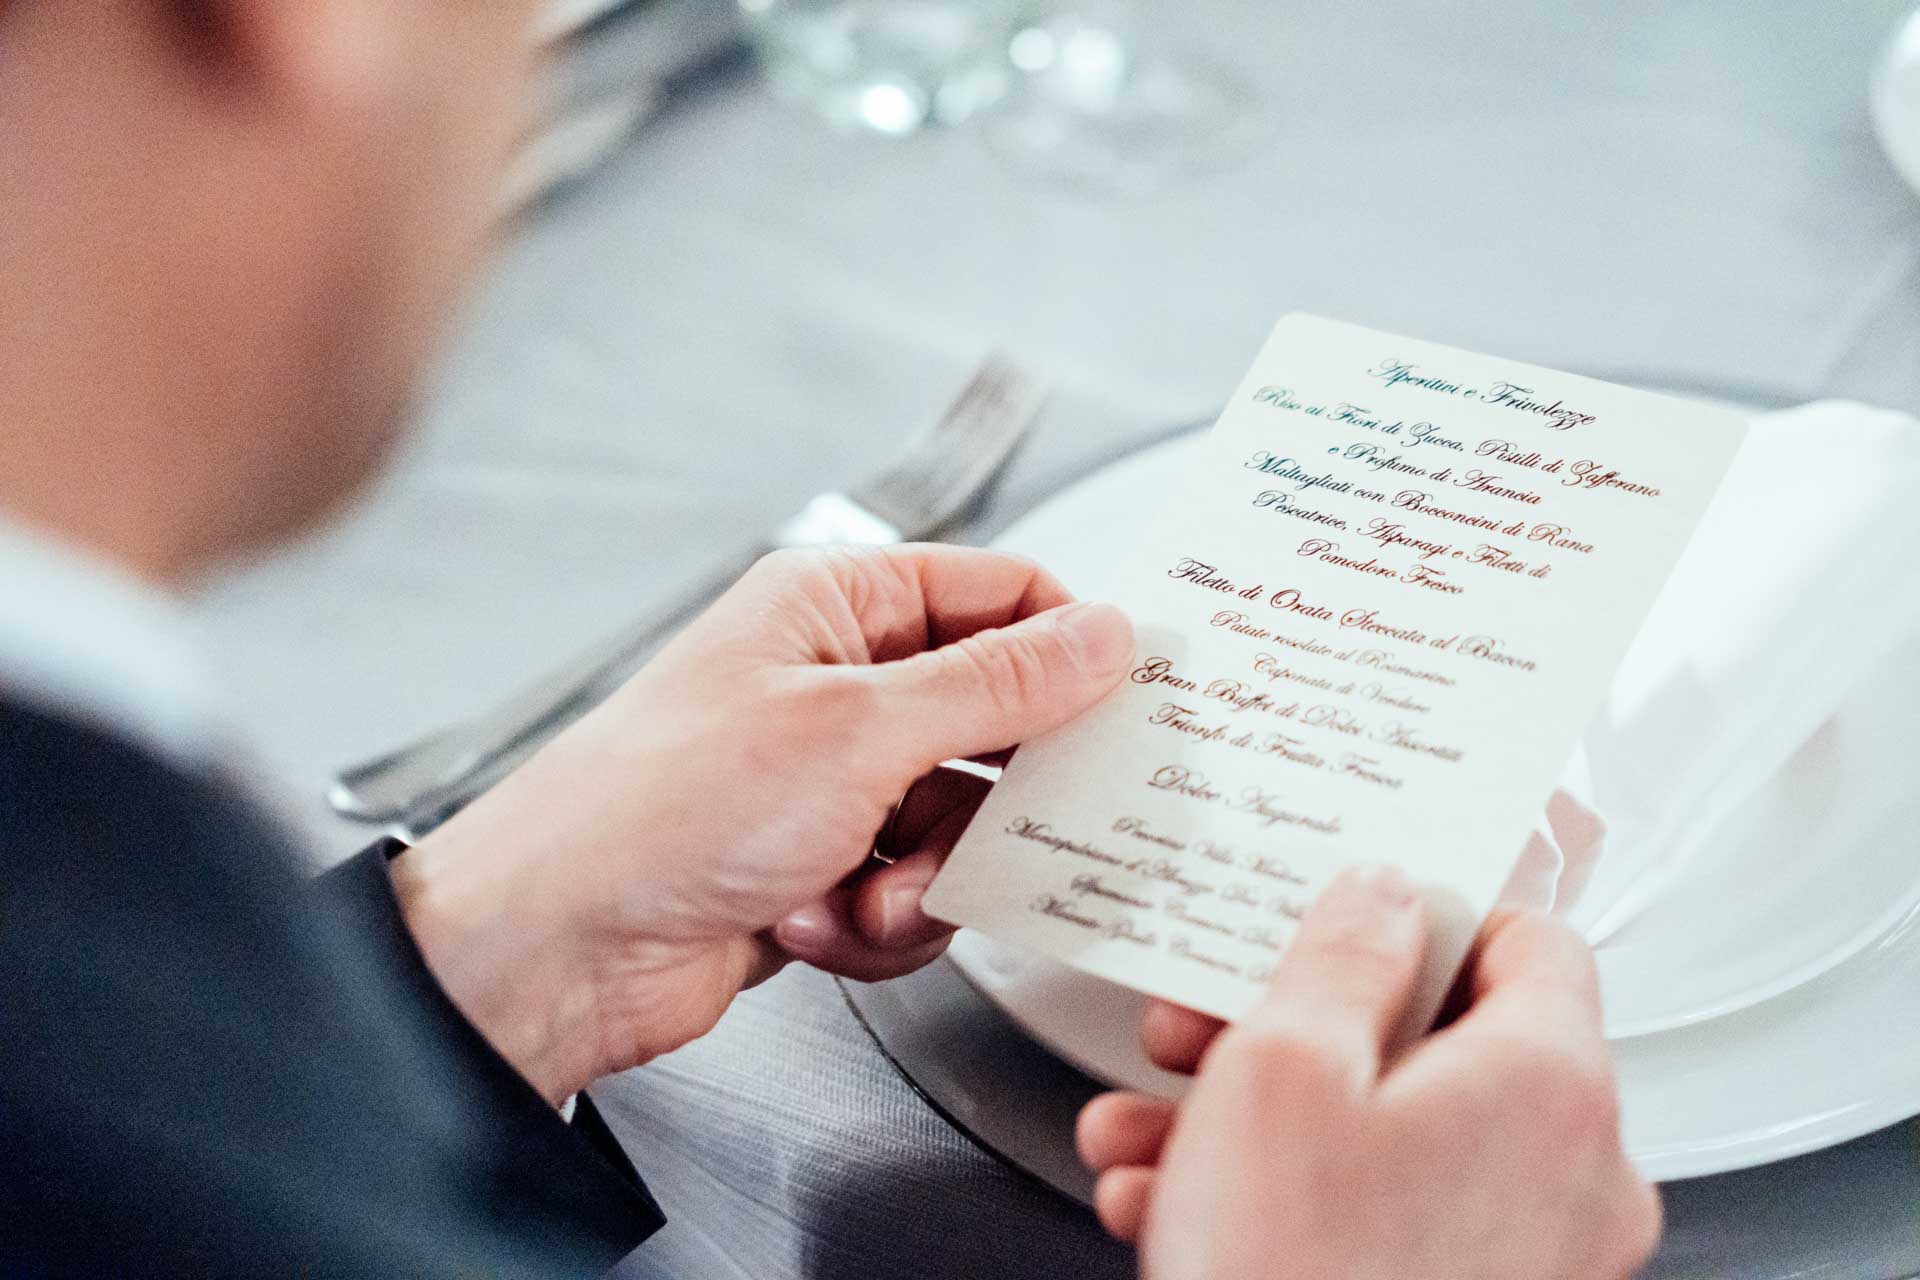 Aperitivi e Frivolezze
Riso ai Fiori di Zucca, Pistilli di Zafferano
e Profumo di Arancia
Maltagliati con Bocconcini di Rana
Pescatrice, Asparagi e Filetti di
Pomodoro Fresco
Filetto di Orata Steccata al Bacon
Patate rosolate al Rosmarino
Caponata di Verdure
Gran Buffet di Dolci Assortiti
Trionfo di Frutta Fresca
Dolce Augurale
Pecorino Villa
Montepulciano d'Abruzzo
Spumante
Moscato